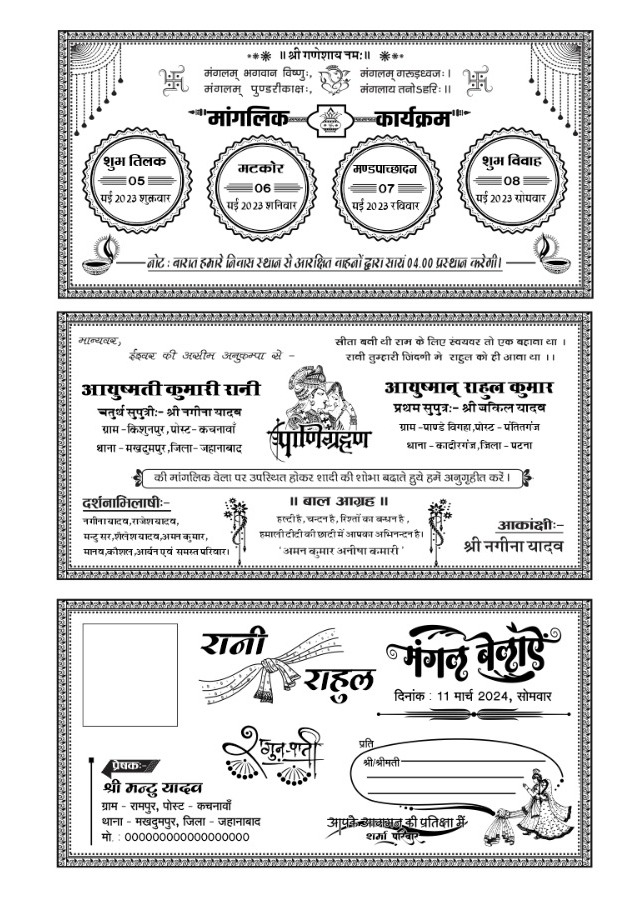 ॥ श्री गणेशाय नमः॥
मंगलम् भगवान विष्णुः, मंगलम् गरुड़ध्वजः।
मंगलम् पुण्डरीकाक्षः, मंगलाय तनोऽहरिः॥
मांगलिक कार्यक्रम
शुभ तिलक
05
मई 2023 शुक्रवार
मटकोर
06
मई 2023 शनिवार
मण्डपाच्छादन
07
मई 2023 रविवार
शुभ विवाह
08
मई 2023 सोमवार
नोट : बारात हमारे निवास स्थान से आरक्षित वाहनों द्वारा सायं 04.00 प्रस्थान करेगी।
मान्यवर,
ईश्वर की असीम अनुकम्पा से –
सीता बनी थी राम के लिए स्वंयवर तो एक बहाना था ।
रानी तुम्हारी जिंदगी मे राहुल को ही आना था ।।
आयुष्मती कुमारी रानी
चतुर्थ सुपुत्रीः- श्री नगीना यादव
ग्राम - किशुनपुर, पोस्ट- कचनावाँ
थाना - मखदुमपुर, जिला - जहानाबाद
पाणिग्रहण
आयुष्मान् राहुल कुमार
प्रथम सुपुत्रः- श्री बकिल यादव
ग्राम -पाण्डे विगहा,पोस्ट - पंतितगंज
थाना - कादीरगंज,जिला - पटना
की मांगलिक वेला पर उपस्थित होकर शादी की शोभा बढाते हुये हमें अनुगृहीत करें ।
दर्शनाभिलाषीः-
नगीना यादव,राजेश यादव,
मन्टु सर,शैलेश यादव,अमन कुमार,
मानव,कौशल,आर्यन एवं समस्त परिवार।
॥ बाल आग्रह ॥
हल्दी है , चन्दन है , रिश्तों का बन्धन है ,
हमाली दीदी की छादी में आपका अभिनन्दन है।
' अमन कुमार अनीषा कुमारी '
आकांक्षीः-
श्री नगीना यादव
रानी
राहुल
मंगल बेलाऐं
दिनांक : 11 मार्च 2024, सोमवार
शगुन-पाती
प्रेषकः-
श्री मन्टु यादव
ग्राम - रामपुर, पोस्ट - कचनावाँ
थाना - मखदुमपुर, जिला - जहानाबाद
मो. : 000000000000000000
प्रति
श्री/श्रीमती
आपके आगमन की प्रतिक्षा में
शर्मा परिवार